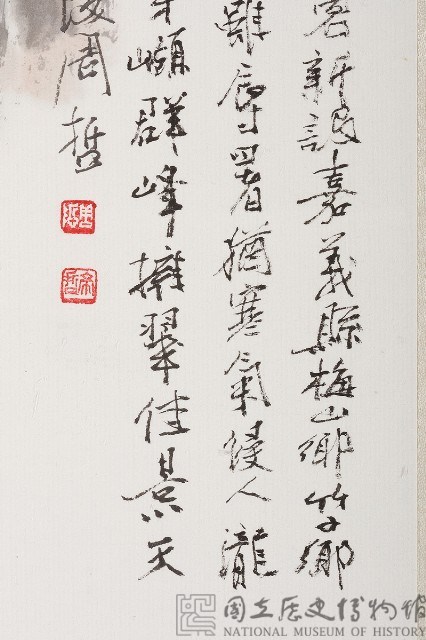 訪嘉義縣梅山鄉竹鄉
雖辱暑猶寒氣侵人瀧
巔群峰擁翠佳景天
周哲
國立歷史博物館
NATIONAL MUSEUM OF HISTORY